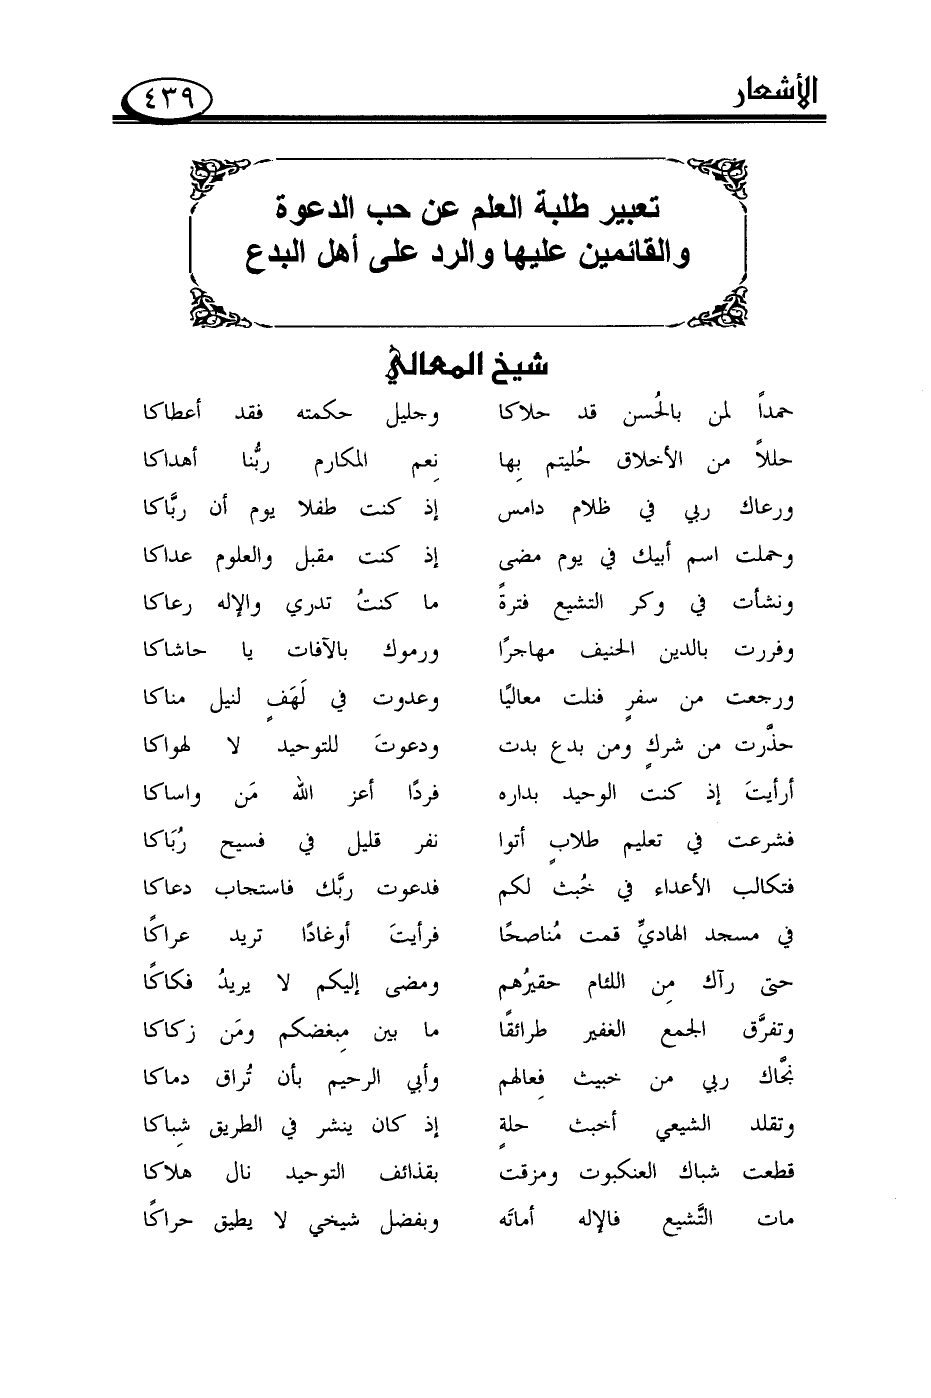 الأشعار ٤٣٩
تعبير طلبة العلم عن حب الدعوة
والقائمين عليها والرد على أهل البدع
شيخ المعالي
حمداً لمن بالحُسن قد حلاكا وجليل حكمته فقد أعطاكا
حللاً من الأخلاق حُليتم بِها نِعم المكارم ربُّنا أهداكا
ورعاك ربي في ظلام دامس إذ كنت طفلا يوم أن ربَّاكا
وحملت اسم أبيك في يوم مضى إذ كنت مقبل والعلوم عداكا
ونشأت في وكر التشيع فترةً ما كنتُ تدري والإله رعاكا
وفررت بالدين الحنيف مهاجرًا ورموك بالآفات يا حاشاكا
ورجعت من سفرٍ فنلت معاليًا وعدوت في لَهَفٍ لنيل مناكا
حذَّرت من شركٍ ومن بدع بدت ودعوتَ للتوحيد لا لهواكا
أرأيتَ إذ كنت الوحيد بداره فردًا أعز الله مَن واساكا
فشرعت في تعليم طلابٍ أتوا نفر قليل في فسيح رُبَاكا
فتكالب الأعداء في خُبث لكم فدعوت ربَّك فاستجاب دعاكا
في مسجد الهاديِّ قمت مُناصحًا فرأيتَ أوغادًا تريد عراكًا
حتى رآك مِن اللئام حقيرُهم ومضى إليكم لا يريدُ فكاكًا
وتفرَّق الجمع الغفير طرائقًا ما بين مبغضِكم ومَن زكاكا
نجَّاك ربي من خبيث فِعالهم وأبي الرحيم بأن تُراق دماكا
وتقلد الشيعي أخبث حلةٍ إذ كان ينشر في الطريق شِباكا
قطعت شباك العنكبوت ومزقت بقذائف التوحيد نال هلاكا
مات التَّشيع فالإله أماتَه وبفضل شيخي لا يطيق حراكًا